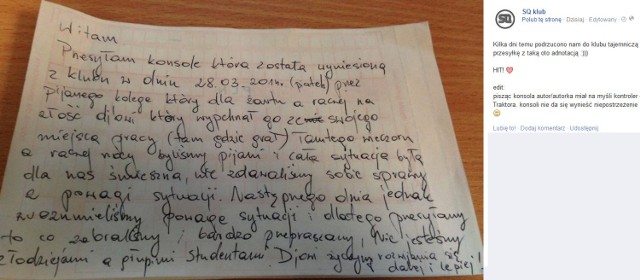 Witam.
Przesyłam konsole która została wyniesioną
z klubu w dniu 28.03.2014r. (piątek) przez
pijanego kolegę który dla żartu a raczej na
złość dijowi który wypchnął go ze swojego
miejsca pracy (tam gdzie grał) Tamtego wieczoru
a raczej nocy byliśmy pijani i cała sytuacja była
dla nas śmieszna, nie zdawaliśmy sobie sprawy
z powagi sytuacji. Następnego dnia jednak
zrozumieliśmy powagę sytuacji i dlatego przesyłamy
to co zabraliśmy i bardzo przepraszamy, Nie jesteśmy
złodziejami a głupimi studentami! Djom życzymy rozwijania się
dalej i lepiej!
SQ klub
Polub tę stronę · Dzisiaj · Edytowany
Kilka dni temu podrzucono nam do klubu tajemniczą
przesyłkę z taką oto adnotacją :)))
HIT!
edit:
pisząc konsola autor/autorka miał na myśli kontroler
Traktora. konsoli nie da się wynieść niepostrzeżenie
Lubię to! · Dodaj komentarz · Udostępnij